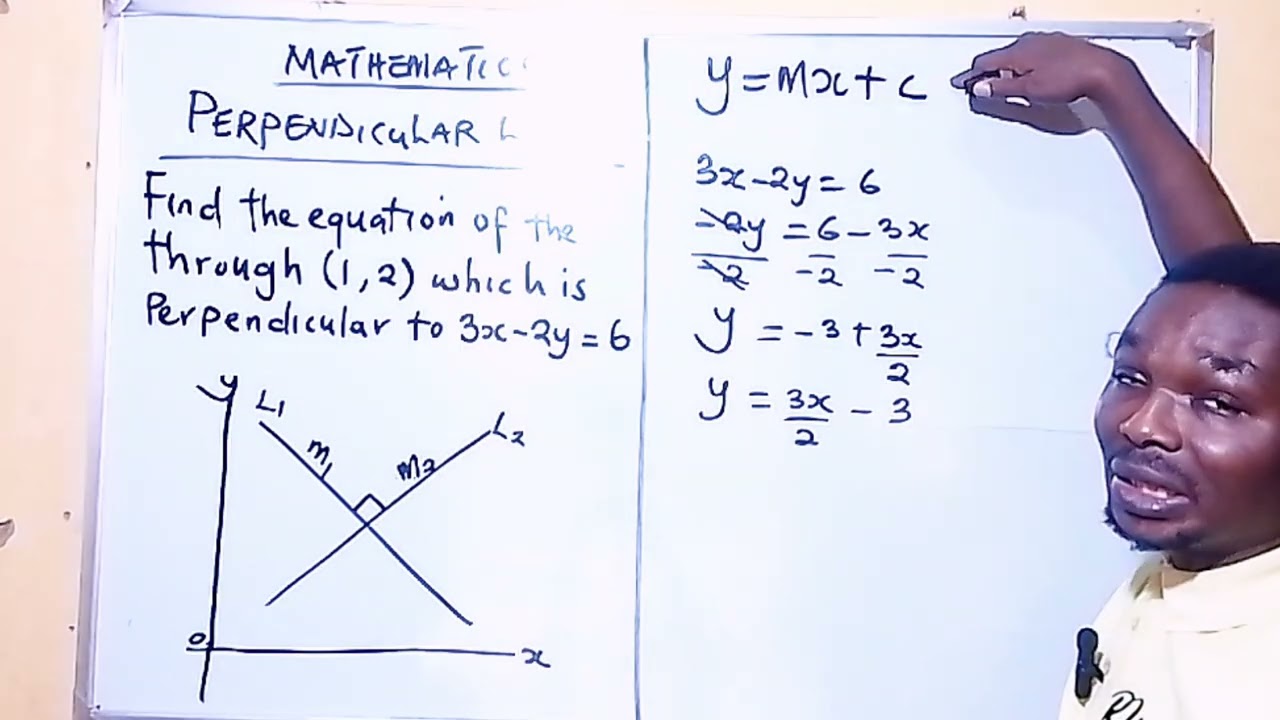 MATHEMATIC
PERPENDICULAR L
Find the equation of the
through (1,2) which is
Perpendicular to 3x-2y=6
y
L1
m1
M2
L2
0
x
y=mx+c
3x-2y=6
-2y/-2 = 6/-2 - 3x/-2
y = -3 + 3x/2
y = 3x/2 - 3